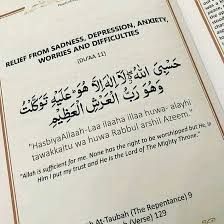 RELIEF FROM SADNESS, DEPRESSION, ANXIETY,
WORRIES AND DIFFICULTIES
(DUAA 11)
حَسْبِيَ اللّٰهُ لَآ اِلٰهَ اِلَّا هُوَ عَلَيْهِ تَوَكَّلْتُ
وَهُوَ رَبُّ الْعَرْشِ الْعَظِيْمِ
"HasbiyaAllaah-Laa ilaaha illaa huwa- alayhi
tawakkaitu wa huwa Rabbul arshil Azeem."
"Allah is sufficient for me. None has the right to be worshipped but He. In
Him I put my trust and He is the Lord of The Mighty Throne."
At-Taubah (The Repentance) 9
Verse) 129